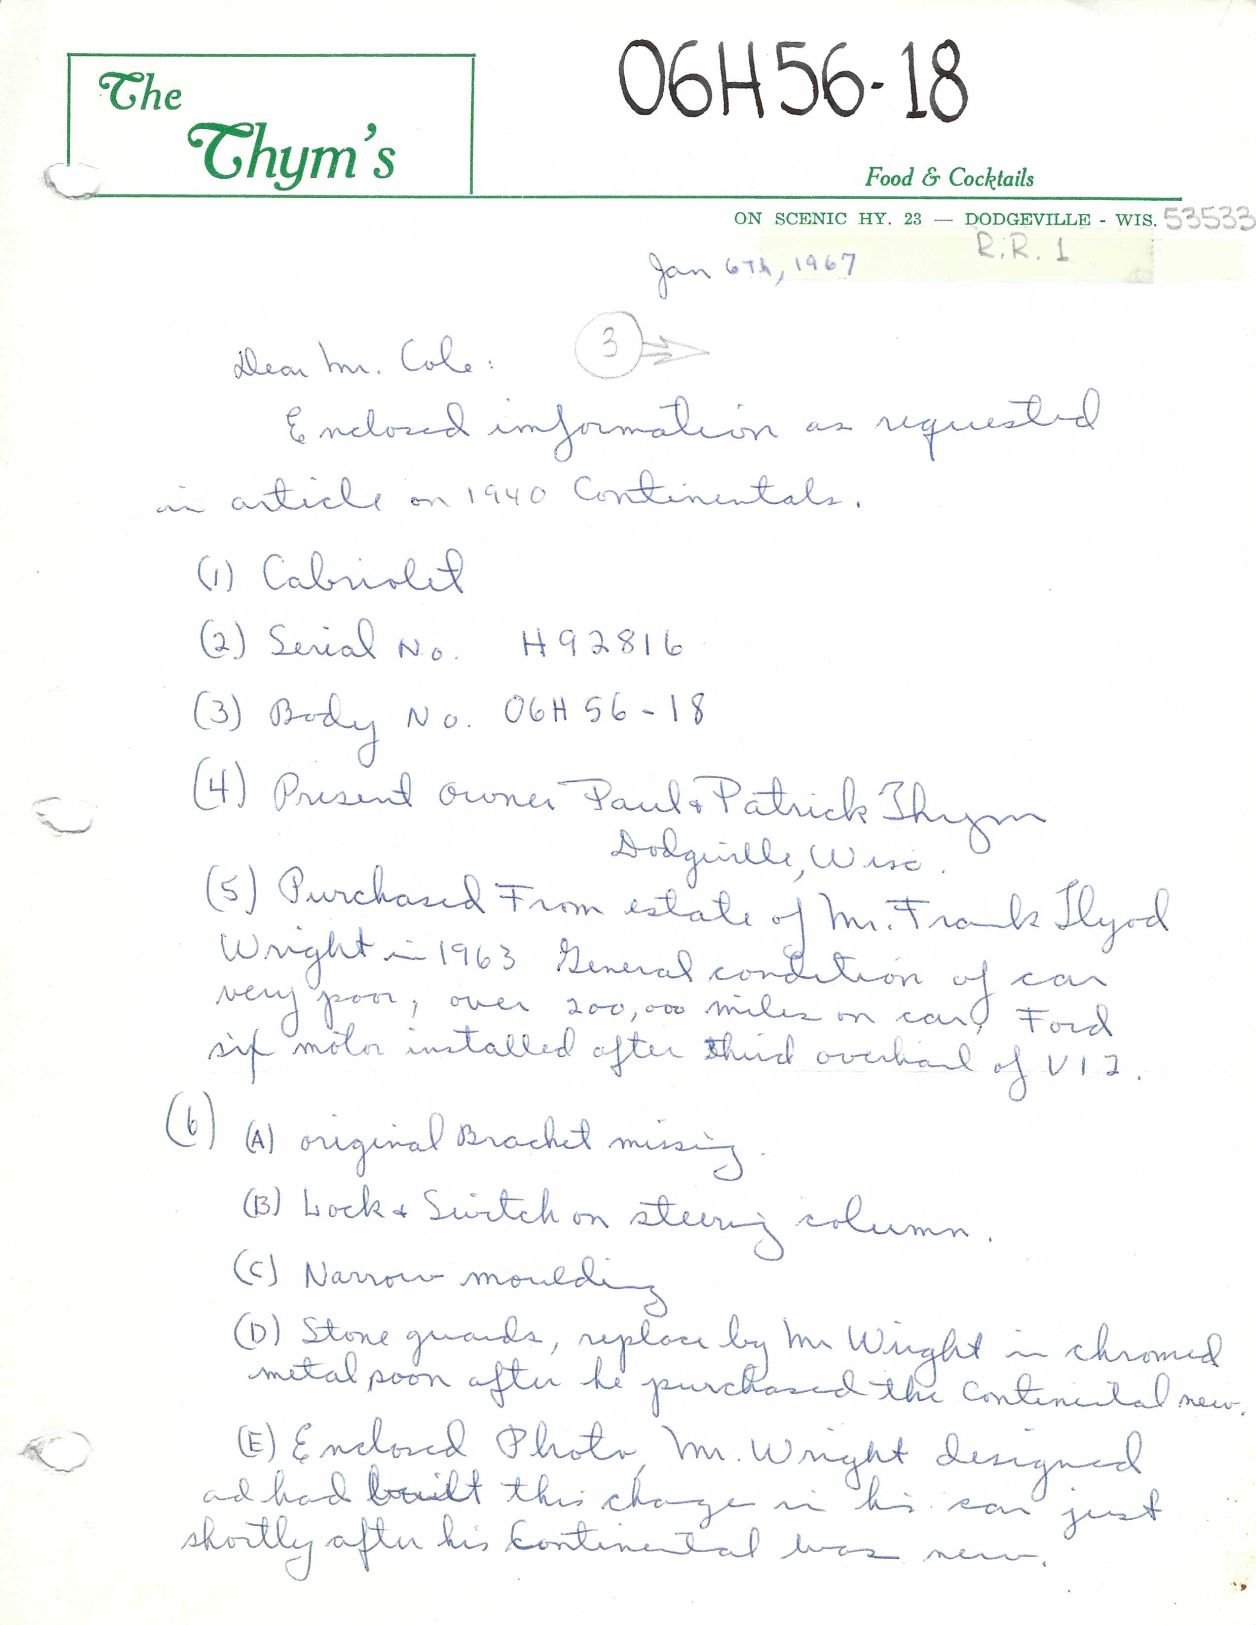 06H56-18
The
Thym's
Food & Cocktails
ON SCENIC HY. 23 — DODGEVILLE - WIS. 53533
R.R. 1
Jan 6Th, 1967
3
Dear Mr. Cole:
Enclosed information as requested
in article on 1940 Continentals.
(1) Cabriolet
(2) Serial No. H92816
(3) Body No. 06H56-18
(4) Present owner Paul & Patrick Thym
Dodgeville, Wisc.
(5) Purchased From estate of Mr. Frank Llyod
Wright in 1963 General condition of car
very poor, over 200,000 miles on car, Ford
six motor installed after third overhaul of V12.
(6) (A) original Bracket missing.
(B) Lock & Switch on steering column.
(C) Narrow moulding
(D) Stone guards, replace by Mr Wright in chromed
metal soon after he purchased the Continental new.
(E) Enclosed Photo, Mr. Wright designed
ad had built this change in his car just
shortly after his Continental was new.